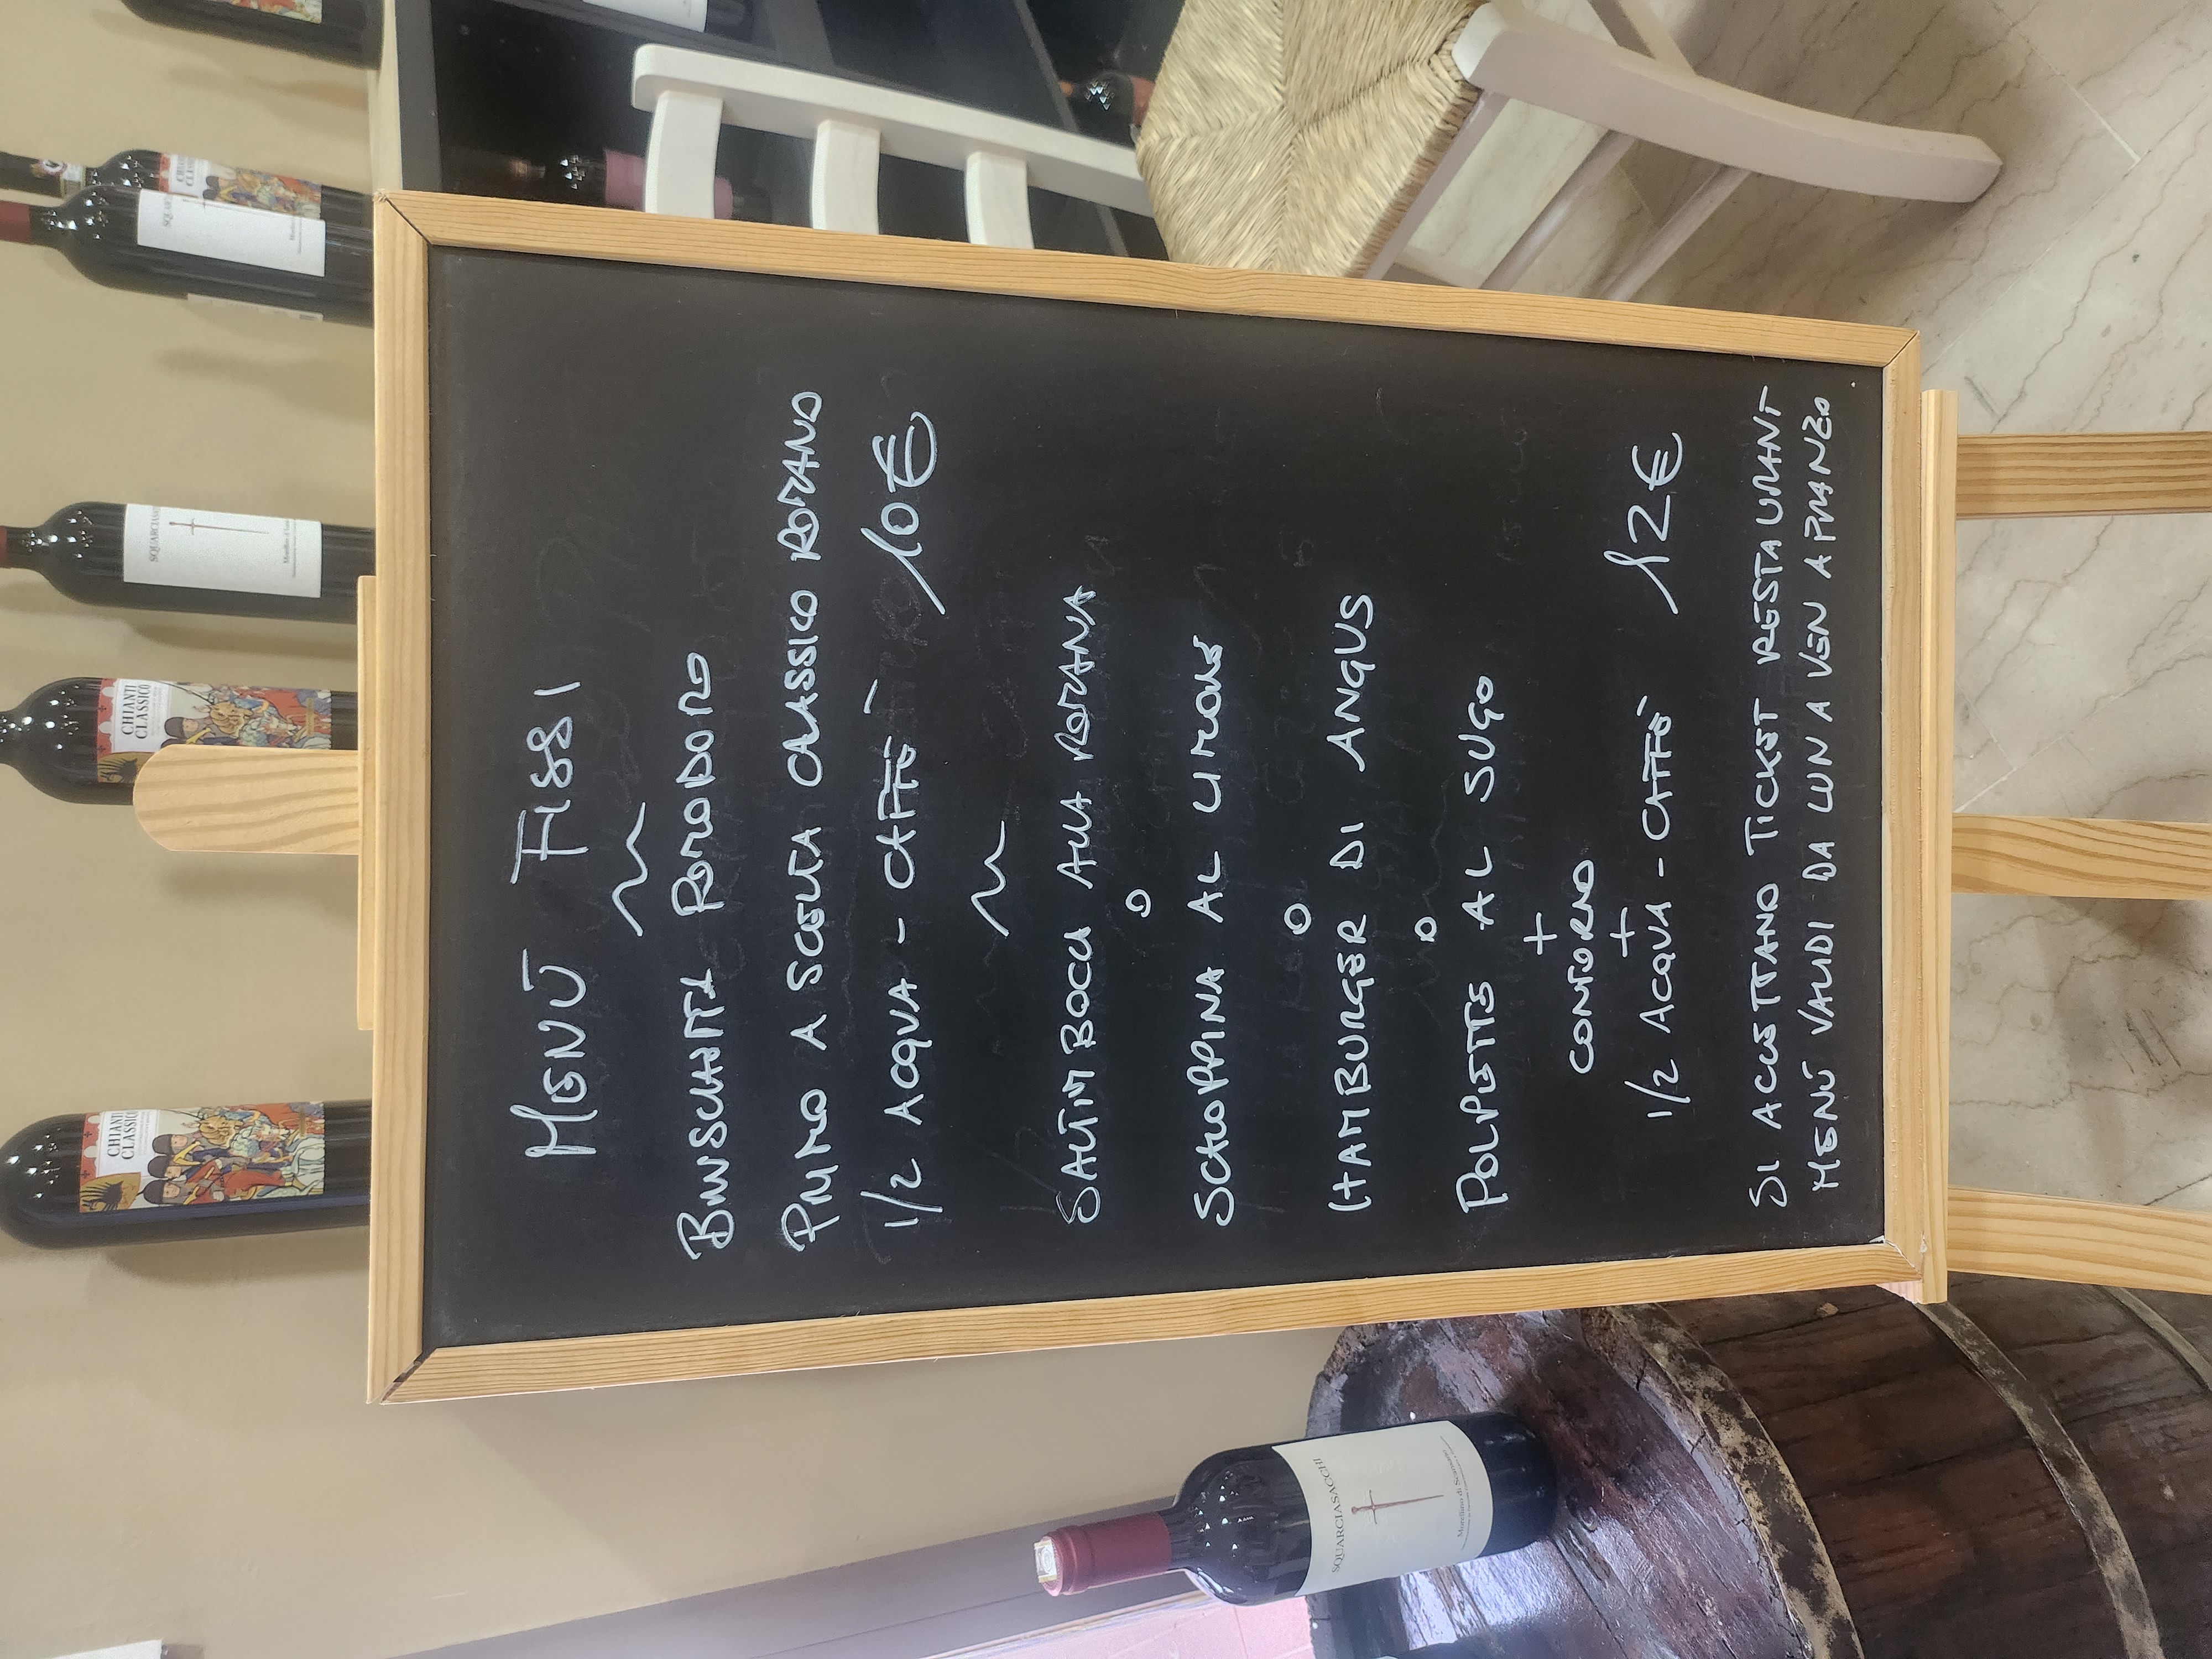 MENÙ FISSI
BRUSCHETTA POMODORO
PRIMO A SCELTA CLASSICO ROMANO
1/2 ACQUA - CAFFÈ 10€
SALTIMBOCCA ALLA ROMANA
O
SCALOPPINA AL LIMONE
O
HAMBURGER DI ANGUS
O
POLPETTE AL SUGO
+
CONTORNO
+
1/2 ACQUA - CAFFÈ 12€
SI ACCETTANO TICKET RESTAURANT
MENÙ VALIDI DA LUN A VEN A PRANZO
CHIANTI
CLASSICO
CHIANTI
CLASSICO
SQUARCIASACCHI